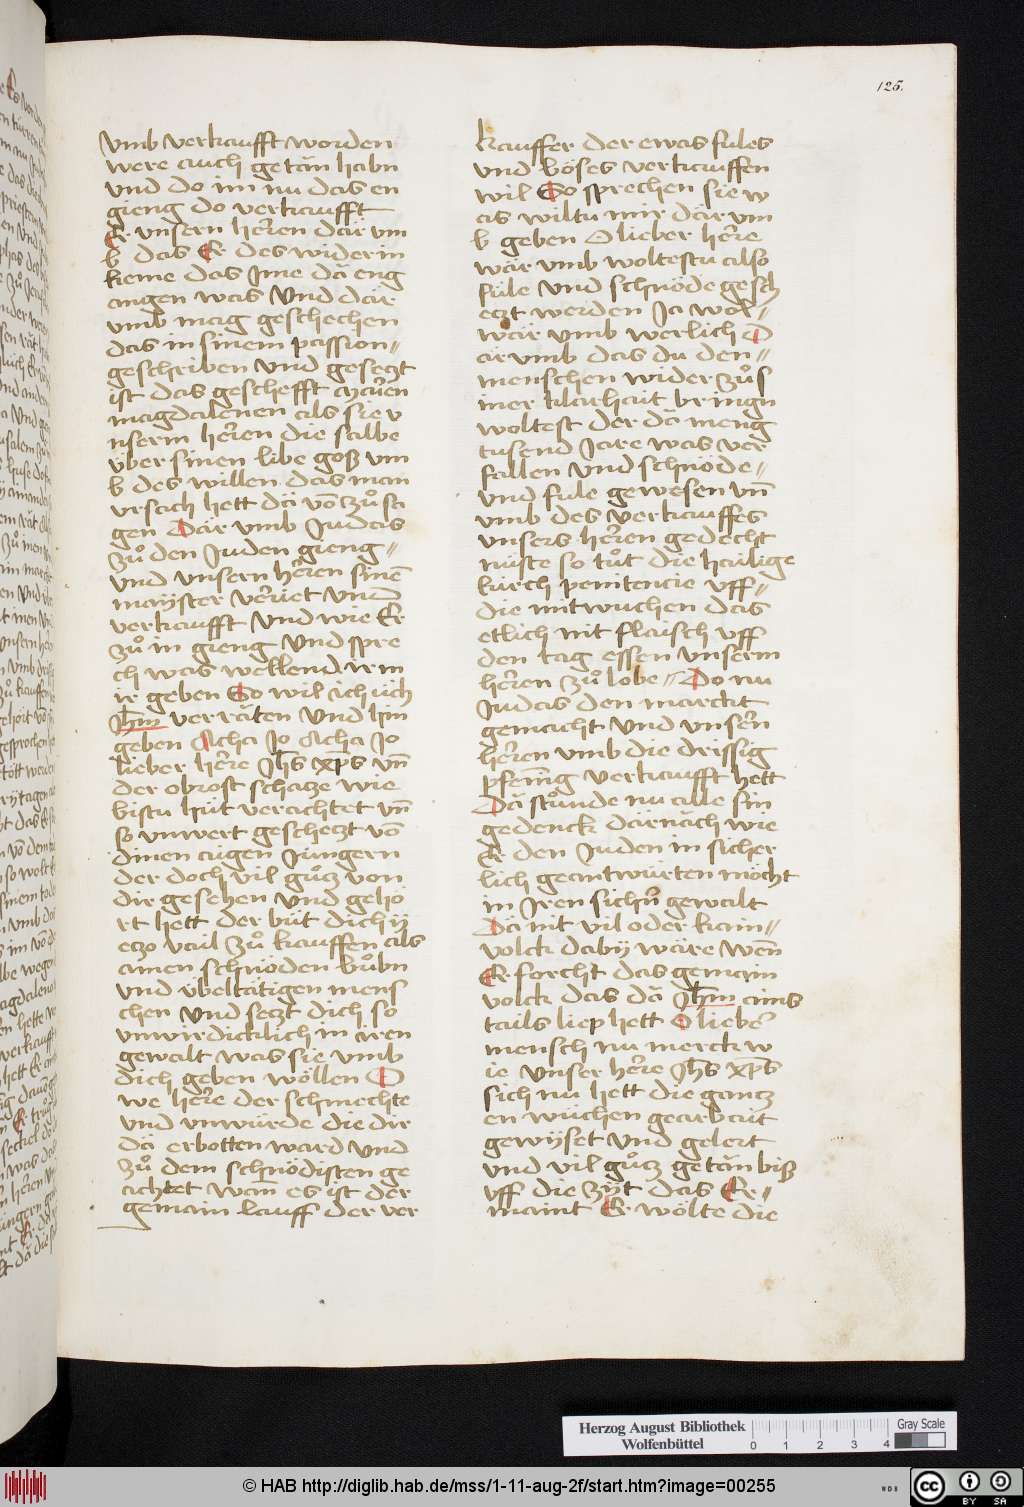 125.
vmb verkaufft worden
were auch getān habn
vnd do im nu das en
gieng do verkaufft
Er vnsern herren dār vm
b das Er des widerin
keme das Jme dā eng
angen was Vnd dār
vmb mag geschechen
das in sinem passion〃
geschriben Vnd gesetzt
ist das geschefft marien
magdalenen als sie v
nserm herren die salbe
v̈ber sinen libe goß vm
b des willen das man
vrsach hett dā vō zů sa
gen Dār vmb Judas
zů den Juden gieng〃
vnd vnsern herren sinē
mayster verriet Vnnd
verkaufft Vnd wie Er
zů in gieng Vnd spre
ch was wellend ir m
ir geben So wil ich üch
Jhm̄ verrāten Vnd Im
geben Acha Jo Acha Jo
lieber herre Jhs̄ xp̄s vn̄
der obrost schatze wie
bistu hüt verachtet vn̄
so vnwert geschetzt vō
dinen aigen Jungern
der doch vil gůtz von
dir gesehen Vnd gehö
rt hett der büt dich ÿ
etzo vail zů kauffen als
ainen schnöden bůbn
vnd übeltätigen mens
chen Vnd setzt dich so
vnwirdicklich in iren
gewalt was sie vmb
dich geben wöllen O
we herre der schmechte
vnd vnwürde die dir
dā erbotten ward Vnd
zů dem schnödisten ge
achtet wan̄ es ist der
gemain lauff der ver
kauffer der ewas fules
vnd böses verkauffen
wil So sprechen sie w
as wiltu mir dār vm
b geben O lieber herre
wār vmb woltestu also
fūle Vnd schnöde gesch
etzt werden Ja wol〃
wār vmb werlich D
ār vmb das du den〃
menschen wider zů s
iner klarhait bringn
woltest der dā meng
tusend Jare was ver
fallen Vnd schnöde〃
vnd fule gewesen vn̄
vmb des verkauffes
vnsers herren gedecht
nüste so tůt die hailige
kirch penitencie vff〃
die mitwuchen das
etlich nit flaisch vff
den tag essen vnserm
herren zů lobe〃 Do nu
Judas den marckt
gemacht Vnd vnsern
herren vmb die drissig
pfenn̄ig verkaufft hett
Dā stůnde nu alle sin
gedenck dārnāch wie
Er den Juden in sicher
lich geantwürten möcht
in Jren sichn̄ gewalt
Dā nit vil oder kain〃
volck dabÿ wāre wen̄
Er forcht das gemain
volck das dā Jhm̄ ains
tails liep hett O lieber
mensch nu merck w
ie Vnser herre Jhs̄ xp̄s
sich nu hett die gantz
en wuchen gearbait
gewÿset Vnd gelert
vnd vil gůtz getān biß
vff die zÿt das Er〃
maint Er wölte die
Herzog August Bibliothek
Wolfenbüttel
0 1 2 3 4
Gray Scale
© HAB http://diglib.hab.de/mss/1-11-aug-2f/start.htm?image=00255
WDB
CC BY SA